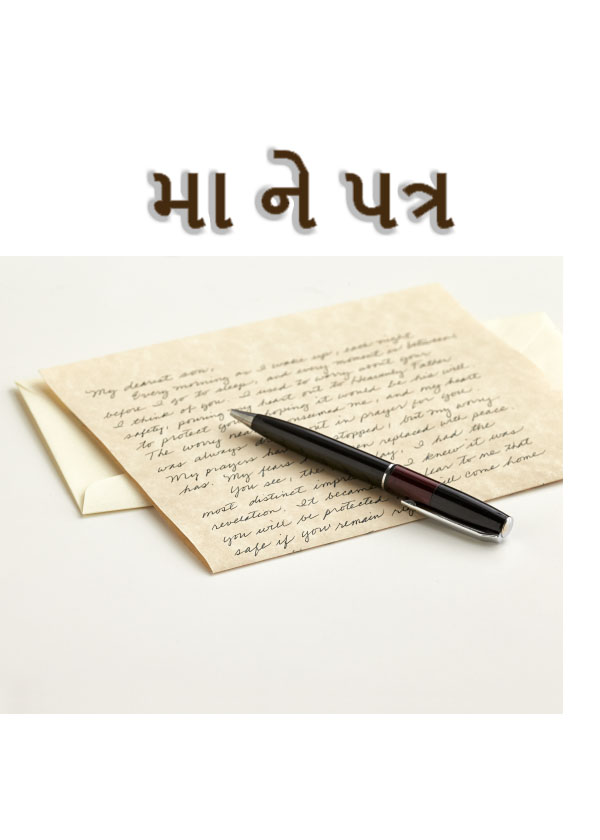 મા ને પત્ર
My dearest son,
Every morning as I wake up, each night
before I go to sleep, and every moment in between
I think of you. I used to worry about your
safety, pouring my heart out to Heavenly Father
to protect you, hoping it would be his will.
The worry nearly consumed me, and my heart
was always out in prayer for you.
My prayers stopped, but my worry
has. My fears been replaced with peace.
You see, the day, I had the
most distinct I knew it was
revelation. It became clear to me that
you will be protected will come home
safe if you remain